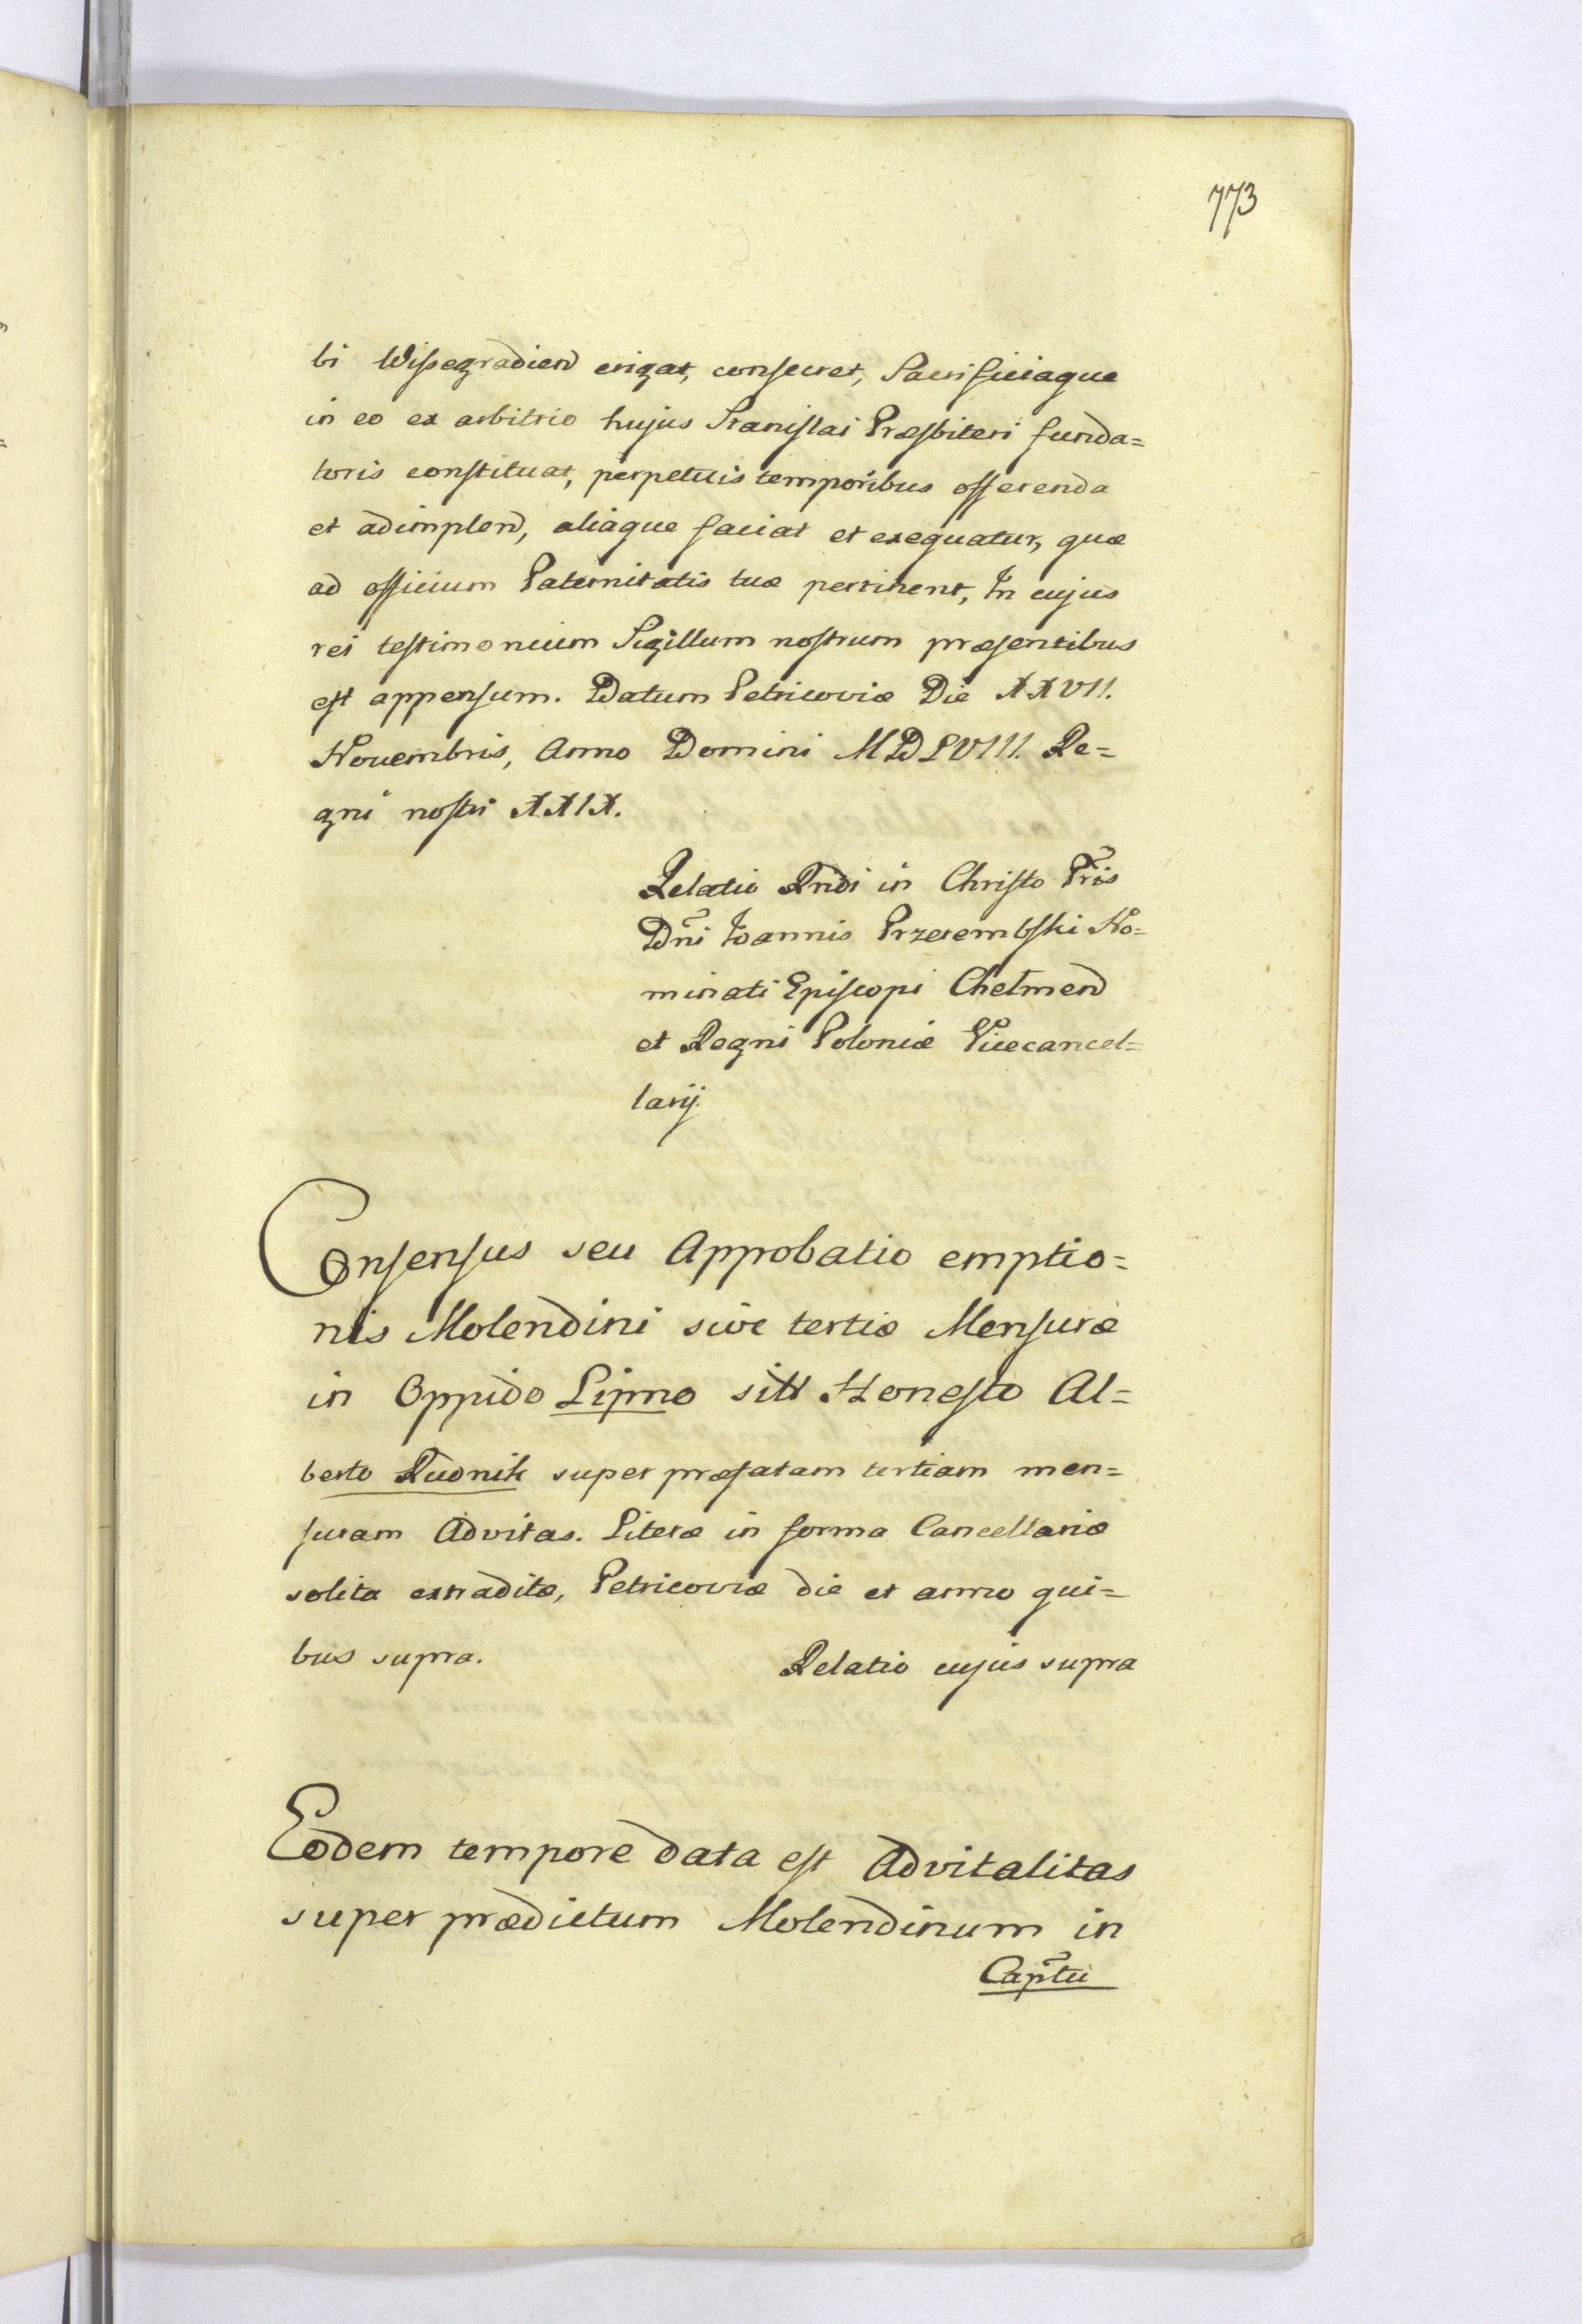 773
bi Wissegradien erigat, consecret, Sacrificiaque
in eo ex arbitrio hujus Stanislai Præsbiteri funda=
toris constituat, perpetuis temporibus offerenda
et adimplen, aliaque faciat et exequatur, quæ
ad officium Paternitatis tuæ pertinent, In cujus
rei testimonium Sigillum nostrum præsentibus
est appensum. Datum Petricoviæ Die XXVII.
Novembris, Anno Domini MDLVIII. Re=
gni nostri XXIX.
Relatio Rndi in Christo Pris
Dni Joannis Przerembski No=
minati Episcopi Chelmen
et Regni Poloniæ Vicecancel=
larij.
Consensus seu Approbatio emptio=
nis Molendini sive tertiæ Mensuræ
in Oppido Lipno sitt Honesto Al=
berto Rudnik super præfatam tertiam men=
suram Advitas. Literæ in forma Cancellariæ
solita extraditæ, Petricoviæ die et anno qui=
bus supra.
Relatio cujus supra
Eodem tempore data est Advitalitas
super prædictum Molendinum in
Captu